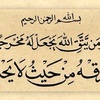 بسم الله الرحمن الرحيم
من يتق الله يجعل له مخرجا
يرزقه من حيث لا